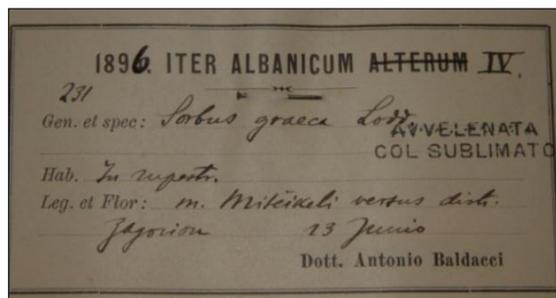 1896. ITER ALBANICUM ALTERUM IV.
231
Gen. et spec: Sorbus graeca Lodd.
AVVELENATA
COL SUBLIMATO
Hab. In rupestr.
Leg. et Flor: m. Mitčikeli versus distr.
Zagorion 13 Junio
Dott. Antonio Baldacci